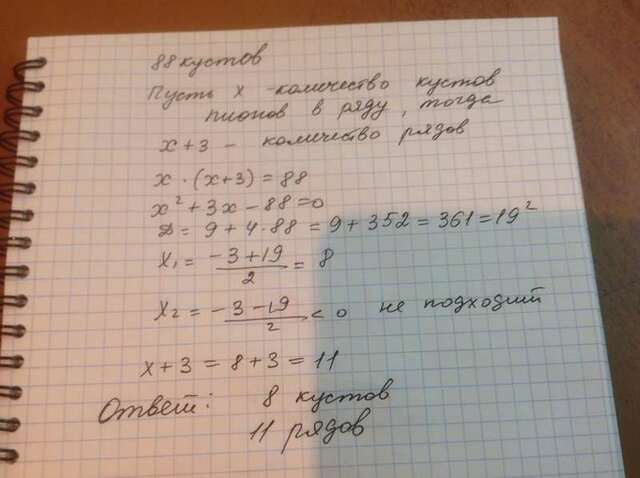 88 кустов
Пусть x - количество кустов
пионов в ряду, тогда
x + 3 - количество рядов
x · (x+3) = 88
x² + 3x - 88 = 0
D = 9 + 4·88 = 9 + 352 = 361 = 19²
x₁ = (-3+19)/2 = 8
x₂ = (-3-19)/2 < 0 не подходит
x + 3 = 8 + 3 = 11
Ответ: 8 кустов
11 рядов